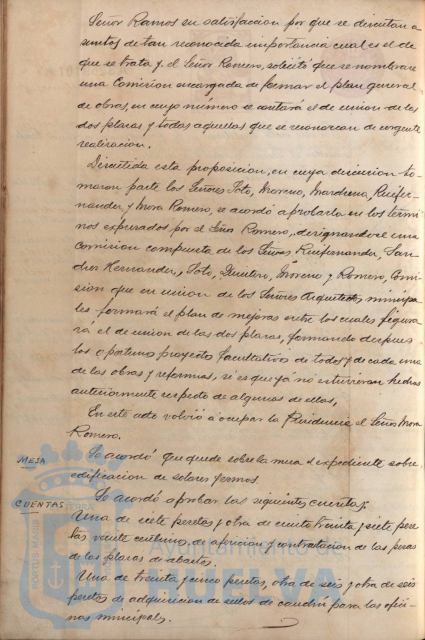 Señor Ramos su satisfaccion por que se discutan a
suntos de tan reconocida importancia cual es el de
que se trata y el Señor Romero, solicitó que se nombrase
una Comision encargada de formar el plan general
de obras, en cuyo número se contará el de union de las
dos plazas y todas aquellas que se reconozcan de urgente
realizacion.
Discutida esta proposicion, en cuya discusion to-
maron parte los Señores Soto, Moreno, Marchena, Ruifer-
nandez y Mora Romero, se acordó aprobarla en los térmi-
nos expresados por el Señor Romero, designandose una
Comision compuesta de los Señores Ruifernandez, San-
chez Hernandez, Soto, Quintero, Moreno y Romero, Comi-
sion que en union de los Señores Arquitectos municipa-
les formará el plan de mejoras entre los cuales figura
rá el de union de las dos plazas, formando despues
los oportunos proyectos facultativos de todos y de cada una
de las obras y reformas, si es que ya no estuvieran hechos
anteriormente respecto de algunas de ellas,
En este acto volvió a ocupar la Presidencia el Señor Mora
Romero.
MESA
Se acordó que quede sobre la mesa el expediente sobre
edificacion de solares yermos.
CUENTAS
Se acordó aprobar las siguientes cuentas:
Una de siete pesetas y otra de ciento treinta y siete pese
tas veinte céntimos de aficion y contratacion de las pesas
de las plazas de abastos.
Una de treinta y cinco pesetas, otra de seis y otra de seis
pesetas de adquisicion de sellos de cauchú para las ofici-
nas municipales.
PORTUS MARIS
TERRAE
Ayuntamiento de
HUELVA